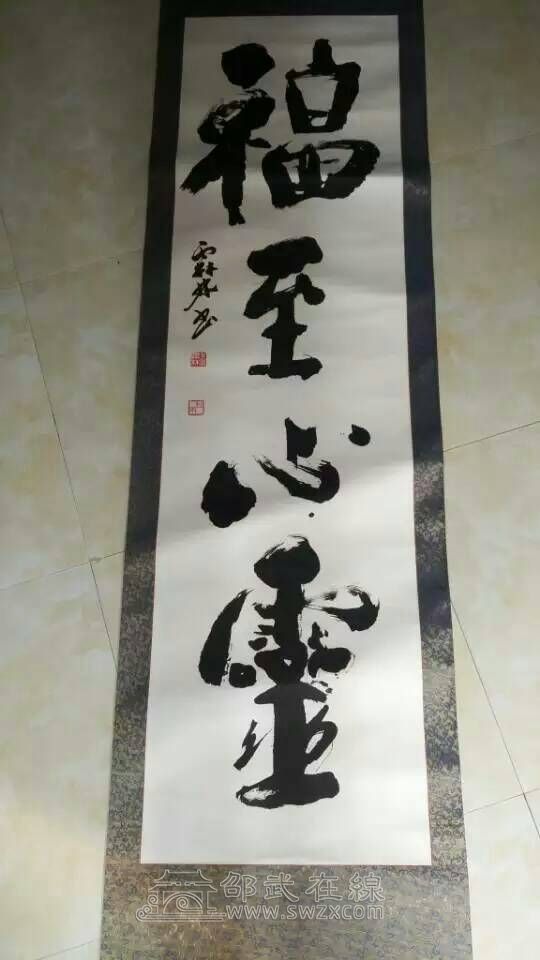 福至心靈
邵武在線
www.swzx.com